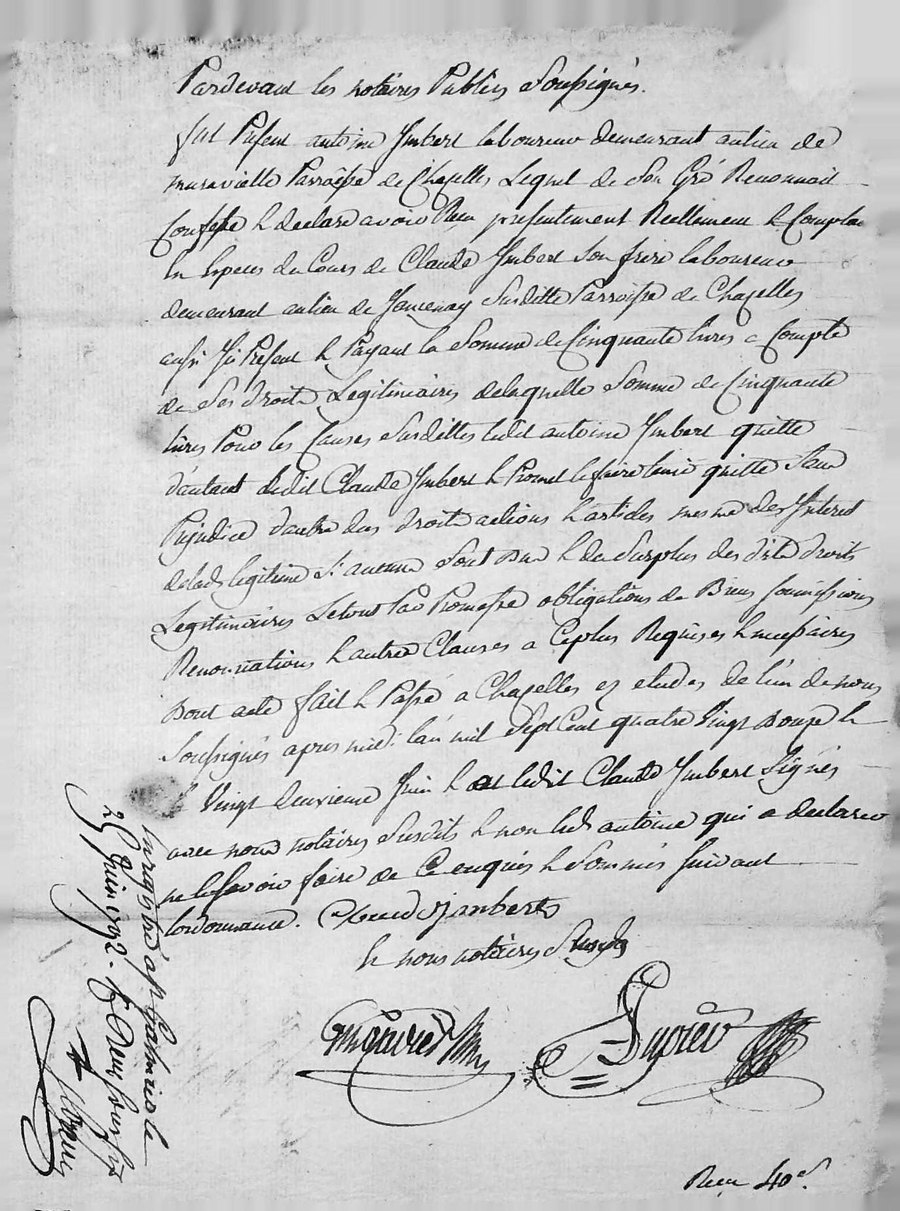 Pardevant les notaires Publics Soussignés.
fut Présent antoine Imbert laboureur demeurant au lieu de
Parroisse de Chazelles Lequel de Son Gré Reconnait
Confesse & declare avoir Reçu présentement Reellement & Comptan
En Especes du Cours de Claude Imbert Son frère laboureur
demeurant au lieu de Susditte Parroisse de Chazelles
aussi Ici Présent & Payant la Somme de Cinquante livres a Compte
de Ses droits Legitimaires de laquelle Somme de Cinquante
livres Pour les Causes Susdittes ledit antoine Imbert quitte
d'autant ledit Claude Imbert & Promet le faire tenir quitte Sans
Préjudice d'autres dus droits actions & articles mesme des Interet
de lad. legitime Si aucuns Sont Dus & du Surplus des dits droits
Legitimaires Le tout Par Promesse obligations de Biens soumissions
Renonciations & autres Clauses a Ce plus Requises & necessaires
Dont acte fait & Passé a Chazelles es etudes de l'un de nous
Soussignés apres midi l'an mil Sept Cent quatre Vingt Douze &
le Vingt deuxieme Juin & a ledit Claude Imbert Signés
avec nous notaires Susdits & non led. antoine qui a declarer
ne le Savoir faire de Ce enquis & Sommés Suivant
lordonnance. Claude Jambert
& nous notaires Susdits
Dupré
Reçu 40 s.
Enregistré a St Galmier le
25 Juin 1792. R